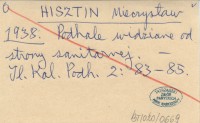 HISZTIN Mieczysław
1938. Podhale widziane od
strony sanitarnej. —
Il. Kal. Podh. 2: 83-85.